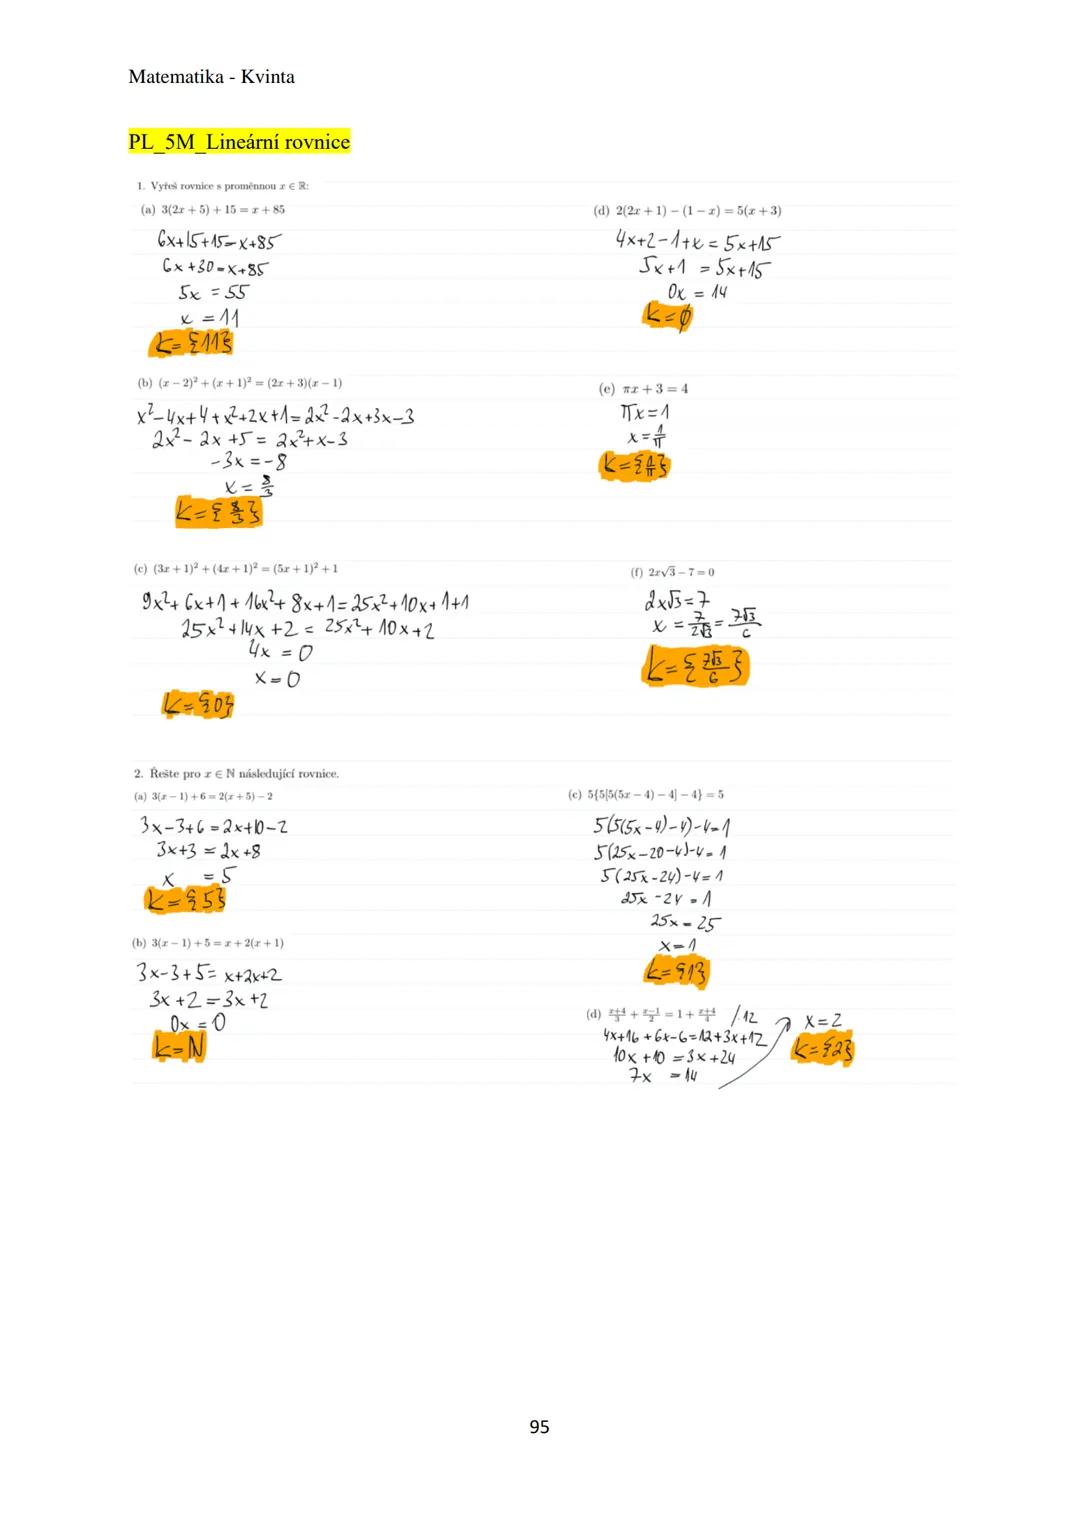 Matematika - Kvinta
PL_5M_Lineární rovnice
1. Vyřeš rovnice s proměnnou x ∈ ℝ:
(a) 3(2x + 5) + 15 = x + 85
6x+15+15=x+85
6x+30=x+85
5x = 55
x = 11
K={11}
(b) (x − 2)² + (x + 1)² = (2x + 3)(x − 1)
x²-4x+4+x²+2x+1=2x²-2x+3x-3
2x²-2x+5=2x²+x-3
-3x=-8
x=8/3
K={8/3}
(c) (3x + 1)² + (4x + 1)² = (5x + 1)² + 1
9x²+6x+1+16x²+8x+1=25x²+10x+1+1
25x²+14x+2=25x²+10x+2
4x=0
x=0
K={0}
(d) 2(2x + 1) − (1 − x) = 5(x + 3)
4x+2-1+x=5x+15
5x+1=5x+15
0x=14
K=∅
(e) πx + 3 = 4
πx=1
x=1/π
K={1/π}
(f) 2x√3 − 7 = 0
2x√3=7
x=7/2√3=7√3/6
K={7√3/6}
2. Řešte pro x ∈ ℕ následující rovnice.
(a) 3(x − 1) + 6 = 2(x + 5) − 2
3x-3+6=2x+10-2
3x+3=2x+8
x=5
K={5}
(b) 3(x − 1) + 5 = x + 2(x + 1)
3x-3+5=x+2x+2
3x+2=3x+2
0x=0
K=N
(c) 5{5[5(5x − 4) − 4] − 4} = 5
5(5(5x-4)-4)-4=1
5(25x-20-4)-4=1
5(25x-24)-4=1
25x-24=1
25x=25
x=1
K={1}
(d) x+4/3 + x−1/2 = 1 + x+4/4 /·12
4x+16+6x-6=12+3x+12
10x+10=3x+24
7x=14
x=2
K={2}
95